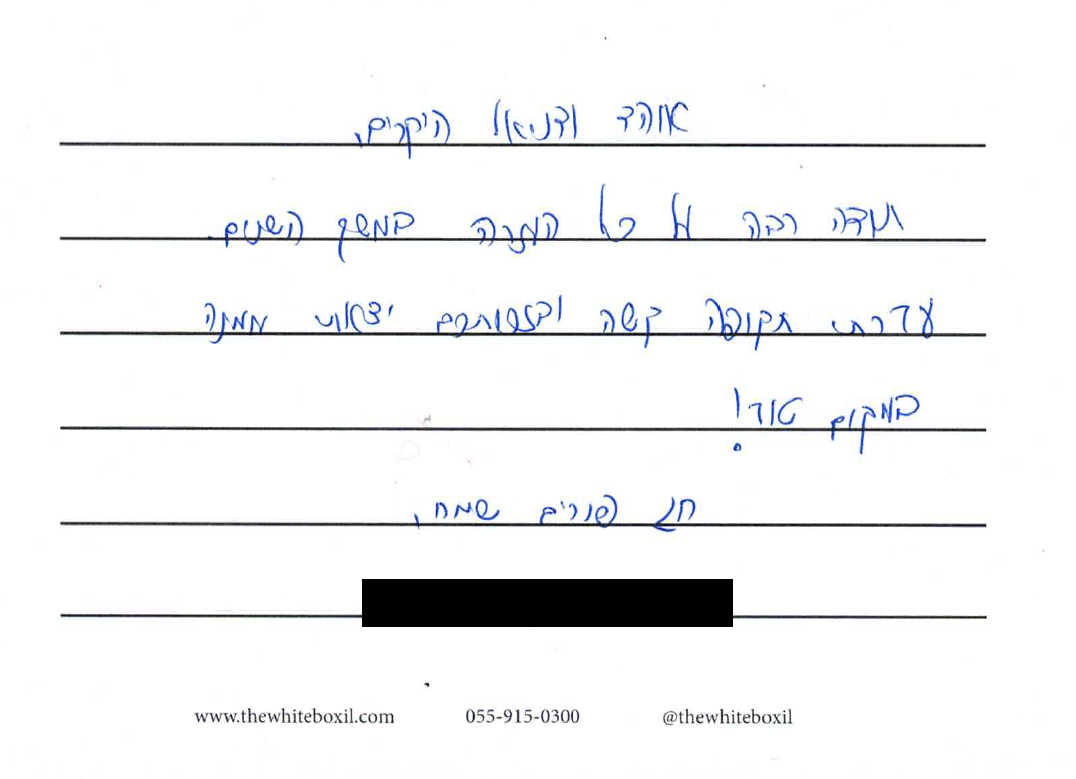 אוהד ודניאל היקרים,
תודה רבה על כל העזרה במשך השנים.
עברתי תקופה קשה ובזכותכם יצאתי ממנה
במקום טוב!
חג פורים שמח,
www.thewhiteboxil.com 055-915-0300 @thewhiteboxil